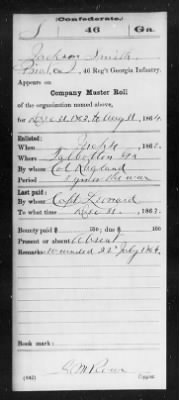 (Confederate.)
S 46 Ga.
Jackson Smith
Pvt, Co. I, 46 Reg't Georgia Infantry.
Appears on
Company Muster Roll
of the organization named above,
for Dec 31 1863, to Aug 31, 1864.
Enlisted:
When 1862.
Where Talbotton Ga
By whom Col Ragland
Period 3 years or the war
Last paid:
By whom Capt Leonard
To what time Dec 31, 1863.
Bounty paid $ 100; due $ 100
Present or absent Absent
Remarks: Wounded 22d July 1864.
Book mark:
(642) Copyist.